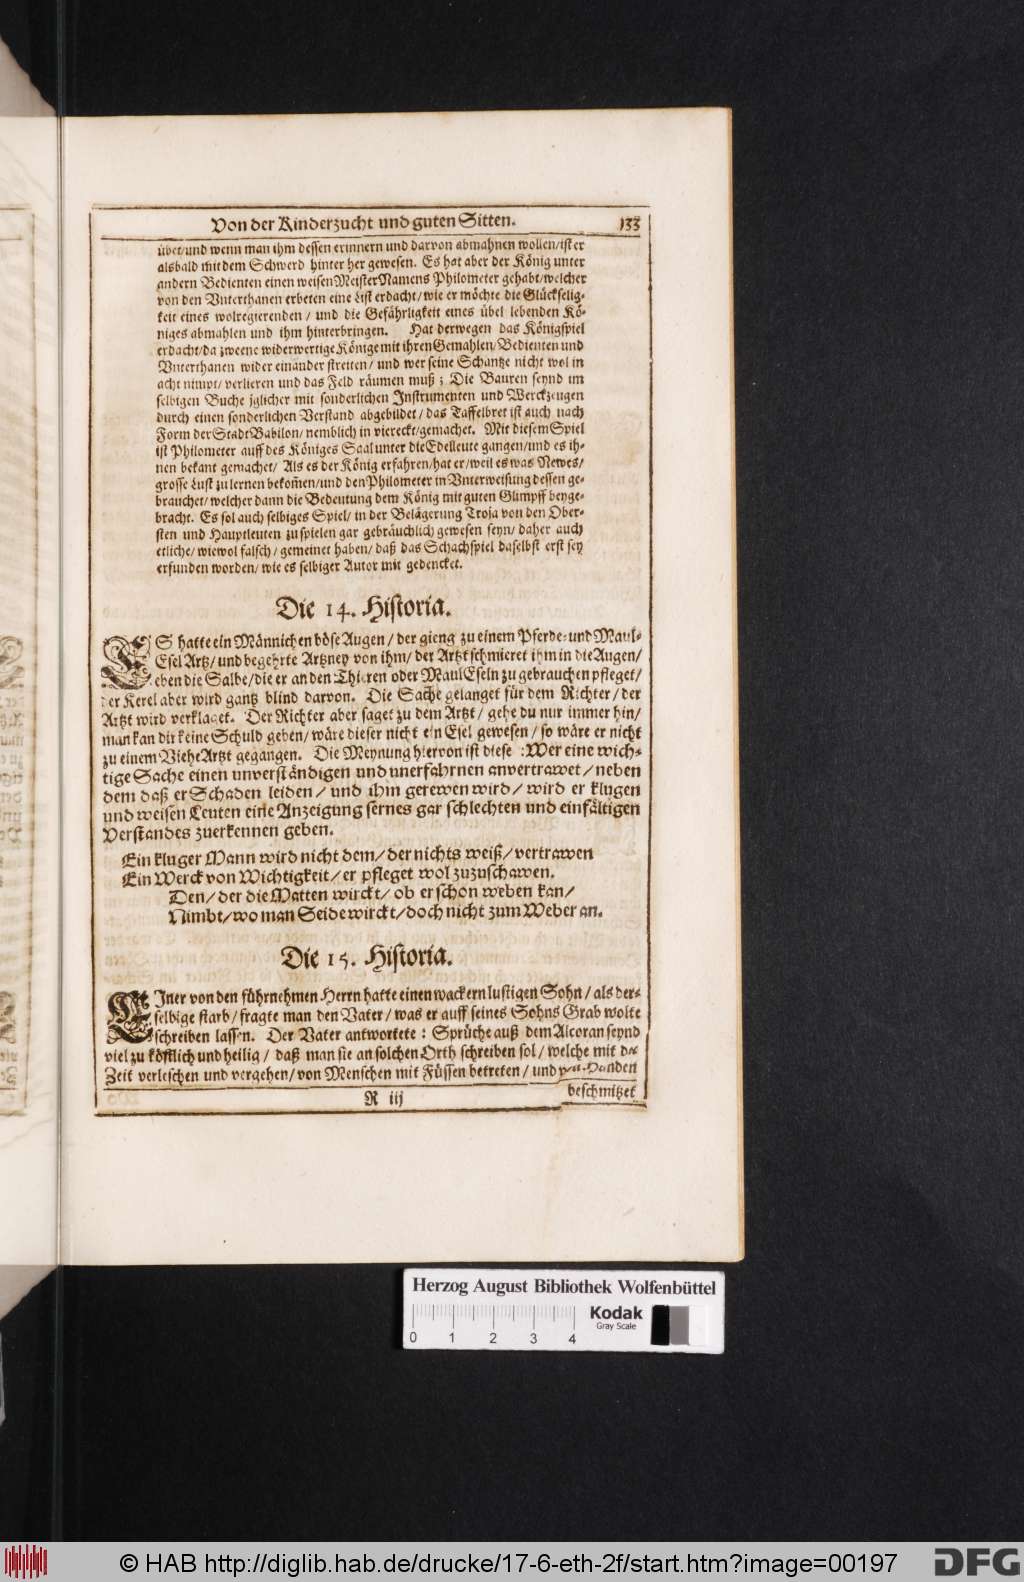 Von der Kinderzucht und guten Sitten. 133
übet/und wenn man ihm dessen erinnern und darvon abmahnen wollen/ist er
alsbald mit dem Schwerd hinter her gewesen. Es hat aber der König unter
andern Bedienten einen weisen Meister Namens Philometer gehabt/welcher
von den Vnterthanen erbeten eine List erdacht/wie er möchte die Glückselig-
keit eines wolregierenden / und die Gefährligkeit eines übel lebenden Kö-
niges abmahlen und ihm hinterbringen. Hat derwegen das Königspiel
erdacht/da zweene widerwertige Könige mit ihren Gemahlen/Bedienten und
Vnterthanen wider einander streiten/ und wer seine Schantze nicht wol in
acht nimpt/ verlieren und das Feld räumen muß; Die Bauren seynd im
selbigen Buche jglicher mit sonderlichen Instrumenten und Werckzeugen
durch einen sonderlichen Verstand abgebildet/ das Taffelbret ist auch nach
Form der Stadt Babilon/ nemblich in viereckt/gemachet. Mit diesem Spiel
ist Philometer auff des Königes Saal unter die Edelleute gangen/und es ih-
nen bekant gemachet/ Als es der König erfahren/hat er/weil es was Newes/
grosse Lust zu lernen bekom̃en/und den Philometer in Vnterweisung dessen ge-
brauchet/ welcher dann die Bedeutung dem König mit guten Glimpff beyge-
bracht. Es sol auch selbiges Spiel/ in der Belägerung Troja von den Ober-
sten und Hauptleuten zu spielen gar gebräuchlich gewesen seyn/ daher auch
etliche/ wiewol falsch/ gemeinet haben/ daß das Schachspiel daselbst erst sey
erfunden worden/ wie es selbiger Autor mit gedencket.
Die 14. Historia.
ES hatte ein Männichen böse Augen / der gieng zu einem Pferde- und Maul-
Esel Artz/ und begehrte Artzney von ihm/ der Artzt schmieret ihm in die Augen/
eben die Salbe/die er an den Thieren oder Maul Eseln zu gebrauchen pfleget/
der Kerel aber wird gantz blind darvon. Die Sache gelanget für dem Richter/ der
Artzt wird verklaget. Der Richter aber saget zu dem Artzt/ gehe du nur immer hin/
man kan dir keine Schuld geben/ wäre dieser nicht ein Esel gewesen/ so wäre er nicht
zu einem Viehe Artzt gegangen. Die Meynung hiervon ist diese : Wer eine wich-
tige Sache einen unverständigen und unerfahrnen anvertrawet/ neben
dem daß er Schaden leiden/ und ihm gerewen wird/ wird er klugen
und weisen Leuten eine Anzeigung seines gar schlechten und einfältigen
Verstandes zuerkennen geben.
Ein kluger Mann wird nicht dem/ der nichts weiß/ vertrawen
Ein Werck von Wichtigkeit/ er pfleget wol zuzuschawen.
Den/ der die Matten wirckt/ ob er schon weben kan/
Nimbt/ wo man Seide wirckt/ doch nicht zum Weber an.
Die 15. Historia.
EIner von den führnehmen Herrn hatte einen wackern lustigen Sohn/ als der-
selbige starb/ fragte man den Vater/ was er auff seines Sohns Grab wolte
schreiben lassen. Der Vater antwortete : Sprüche auß dem Alcoran seynd
viel zu köstlich und heilig / daß man sie an solchen Orth schreiben sol/ welche mit der
Zeit verleschen und vergehen/ von Menschen mit Füssen betreten/ und Hunden
R iij beschmitzet
Herzog August Bibliothek Wolfenbüttel
0 1 2 3 4
Kodak
Gray Scale
© HAB http://diglib.hab.de/drucke/17-6-eth-2f/start.htm?image=00197
DFG